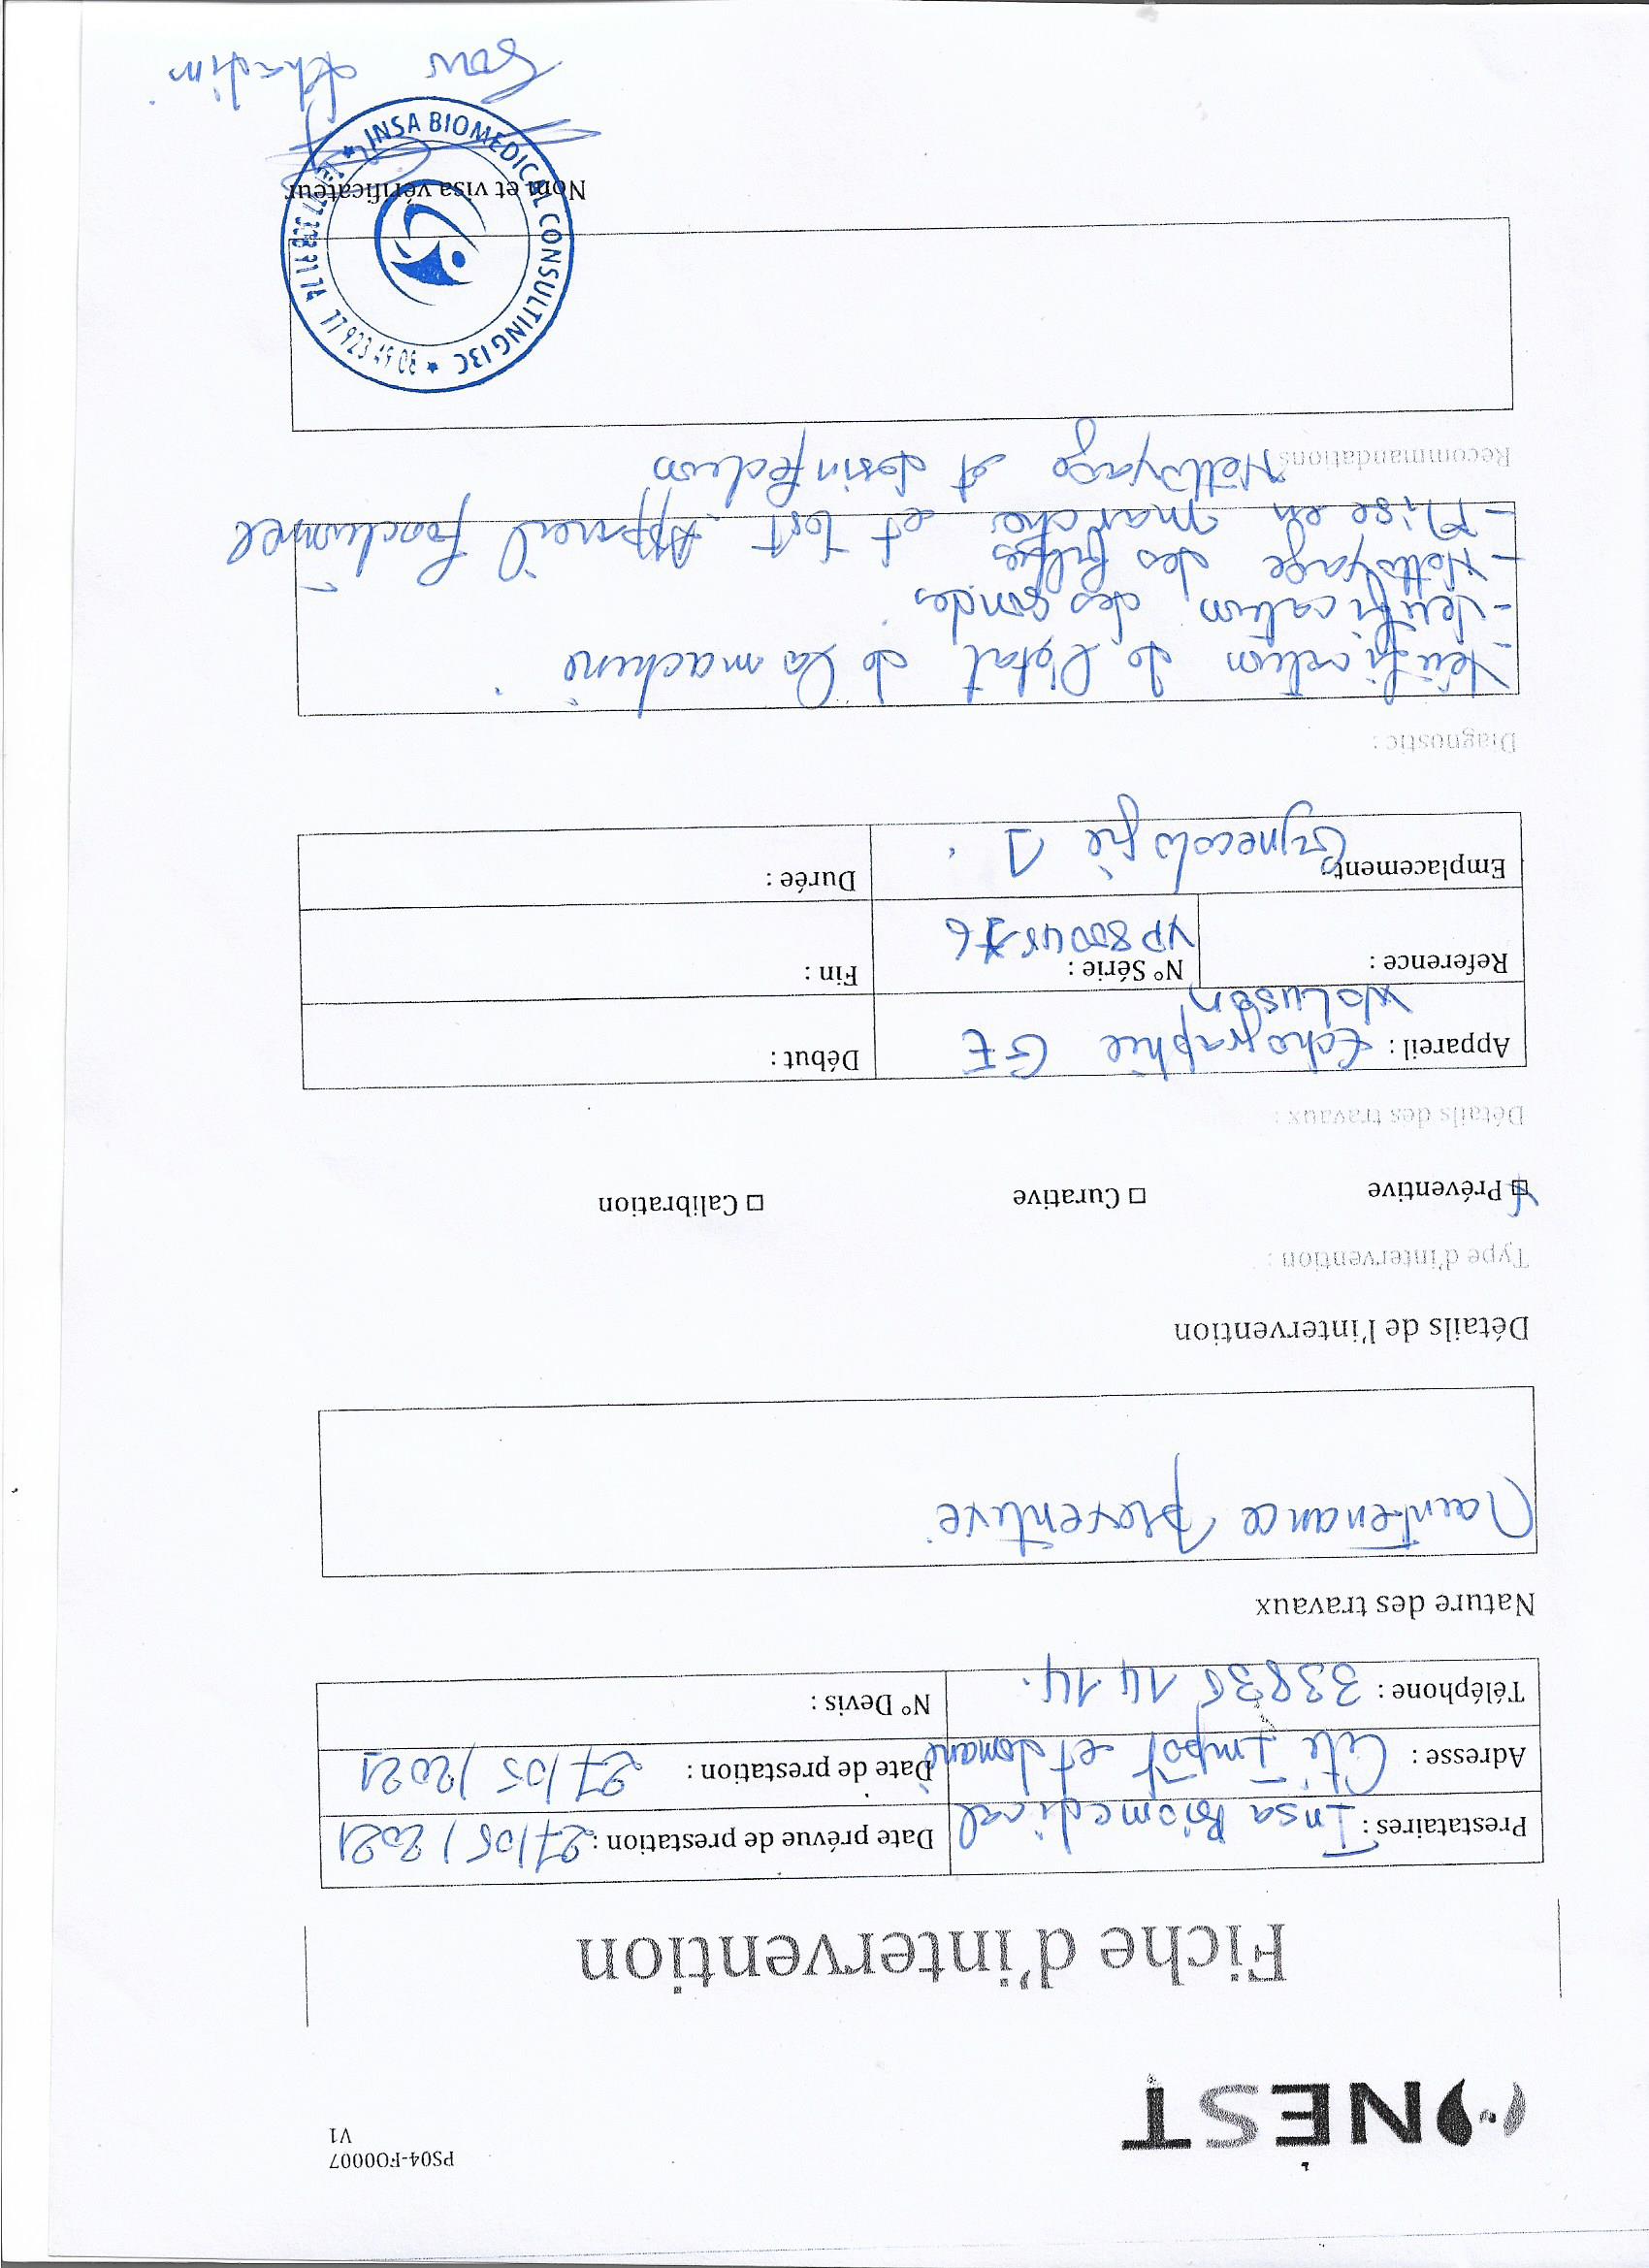 PS04-FO0007
V1
NEST
Fiche d'intervention
Prestataires : Insa Biomedical
Date prévue de prestation : 27/05/2021
Adresse : Cité Impôt et domaine
Date de prestation : 27/05/2021
Téléphone : 33836 14 14.
N° Devis :
Nature des travaux
Maintenance preventive
Détails de l'intervention
Type d'intervention :
Préventive
□ Curative
□ Calibration
Détails des travaux :
Appareil : Echographie GE
Woluson
Début :
Reference :
N° Série :
Fin :
Emplacement : Gynecologie 1.
Durée :
Diagnostic :
- Verification de l'état de la machine
- Verification des sondes
- Nettoyage des filtres
- Mise en marche et test. Appareil fonctionnel
Recommandations
Nettoyage et desinfection
Nom et visa vérificateur
★ INSA BIOMEDICAL CONSULTING I3C ★
77 923 49 08
Sow Khadim